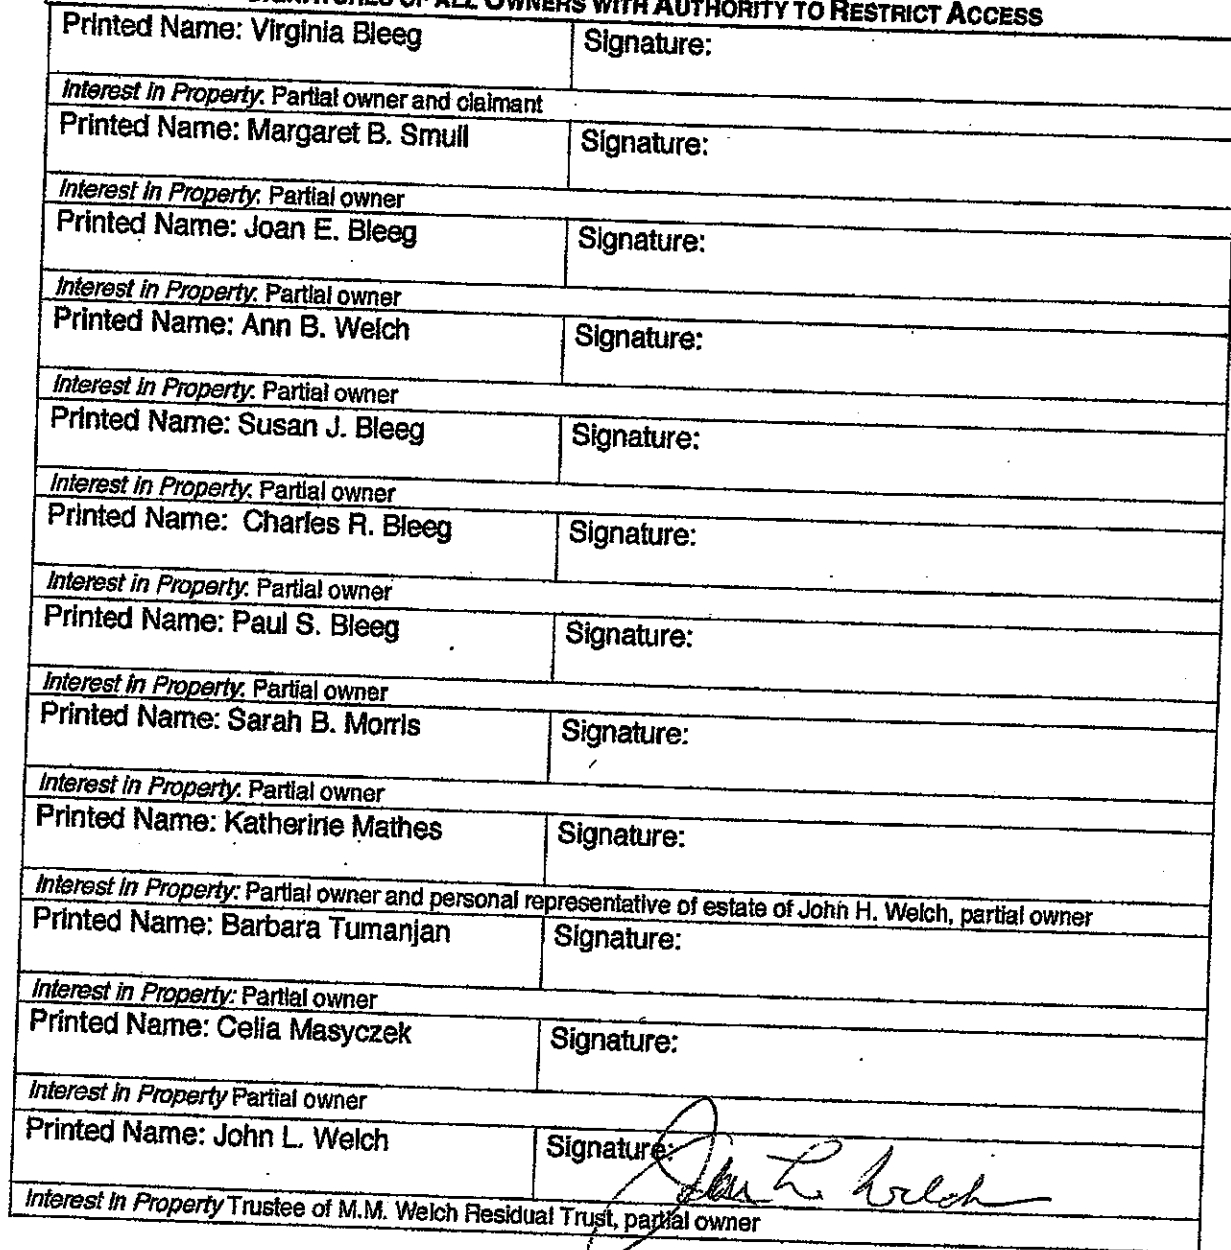 OF ALL OWNERS WITH AUTHORITY TO RESTRICT ACCESS
Printed Name: Virginia Bleeg Signature:
Interest in Property: Partial owner and claimant
Printed Name: Margaret B. Smull Signature:
Interest in Property: Partial owner
Printed Name: Joan E. Bleeg Signature:
Interest in Property: Partial owner
Printed Name: Ann B. Welch Signature:
Interest in Property: Partial owner
Printed Name: Susan J. Bleeg Signature:
Interest in Property: Partial owner
Printed Name: Charles R. Bleeg Signature:
Interest in Property: Partial owner
Printed Name: Paul S. Bleeg Signature:
Interest in Property: Partial owner
Printed Name: Sarah B. Morris Signature:
Interest in Property: Partial owner
Printed Name: Katherine Mathes Signature:
Interest in Property: Partial owner and personal representative of estate of John H. Welch, partial owner
Printed Name: Barbara Tumanjan Signature:
Interest in Property: Partial owner
Printed Name: Celia Masyczek Signature:
Interest in Property Partial owner
Printed Name: John L. Welch Signature: John L. Welch
Interest in Property Trustee of M.M. Welch Residual Trust, partial owner